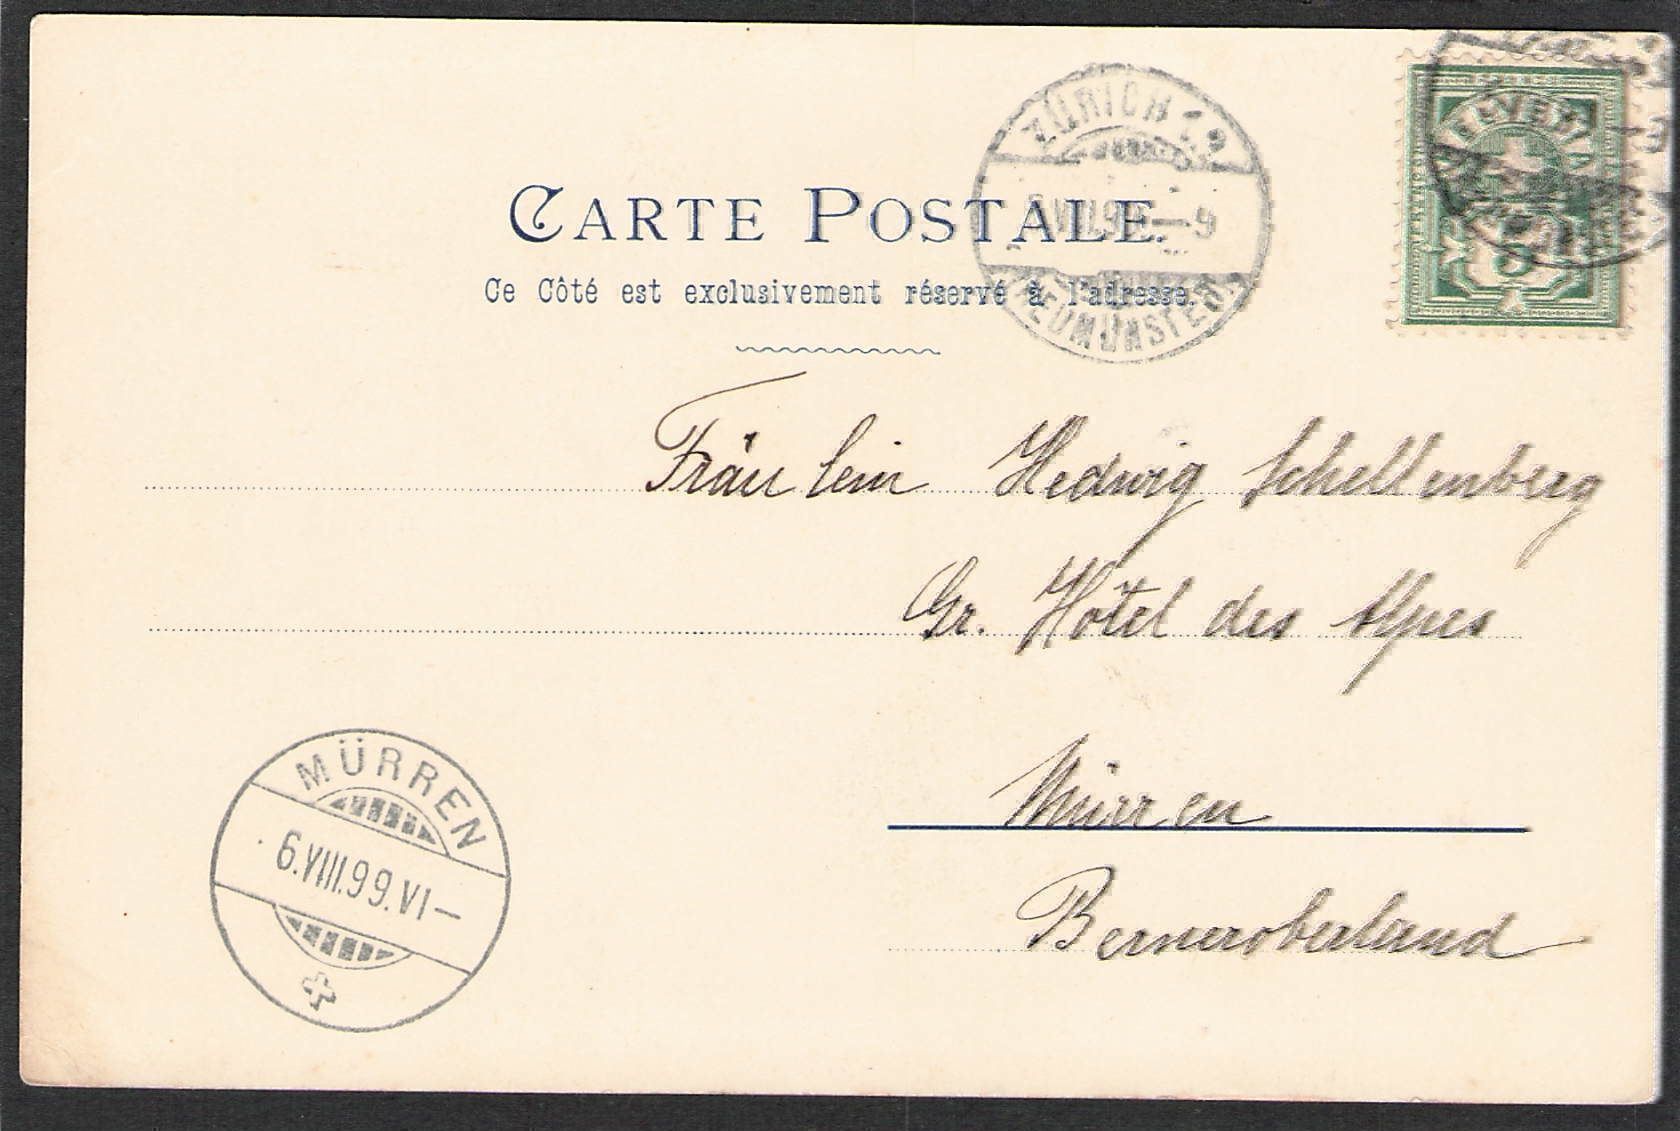 ZÜRICH 12
VIII.99.–9
(NEUMÜNSTER)
HELVETIA
5
CARTE POSTALE.
Ce Côté est exclusivement réservé à l'adresse.
Fräulein Hedwig Schellenberg
Gr. Hôtel des Alpes
Mürren
Berneroberland
MÜRREN
6.VIII.99.VI–